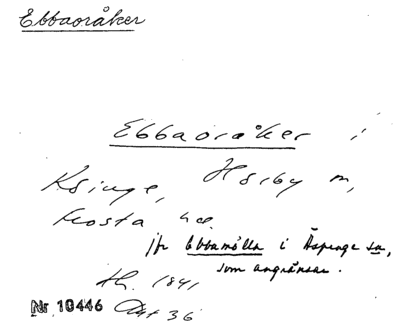 Ebbaoråker
Ebbaoråker i
Ksinge, Hörby sn,
Frosta hd.
jfr Ebbamölla i Äspinge sn,
som angränsar.
1841
Nr 10446 Akt 36